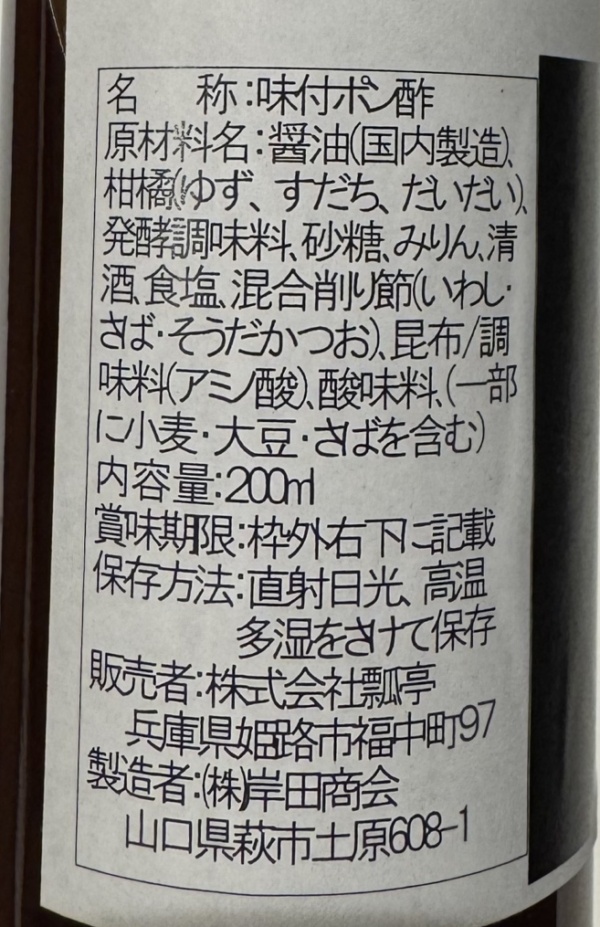 名　　称:味付ポン酢
原材料名:醤油(国内製造)、
柑橘(ゆず、すだち、だいだい)、
発酵調味料、砂糖、みりん、清
酒、食塩、混合削り節(いわし・
さば・そうだかつお)、昆布/調
味料(アミノ酸)、酸味料、(一部
に小麦・大豆・さばを含む)
内容量:200ml
賞味期限:枠外右下に記載
保存方法:直射日光、高温
多湿をさけて保存
販売者:株式会社瓢亭
兵庫県姫路市福中町97
製造者:(株)岸田商会
山口県萩市土原608-1